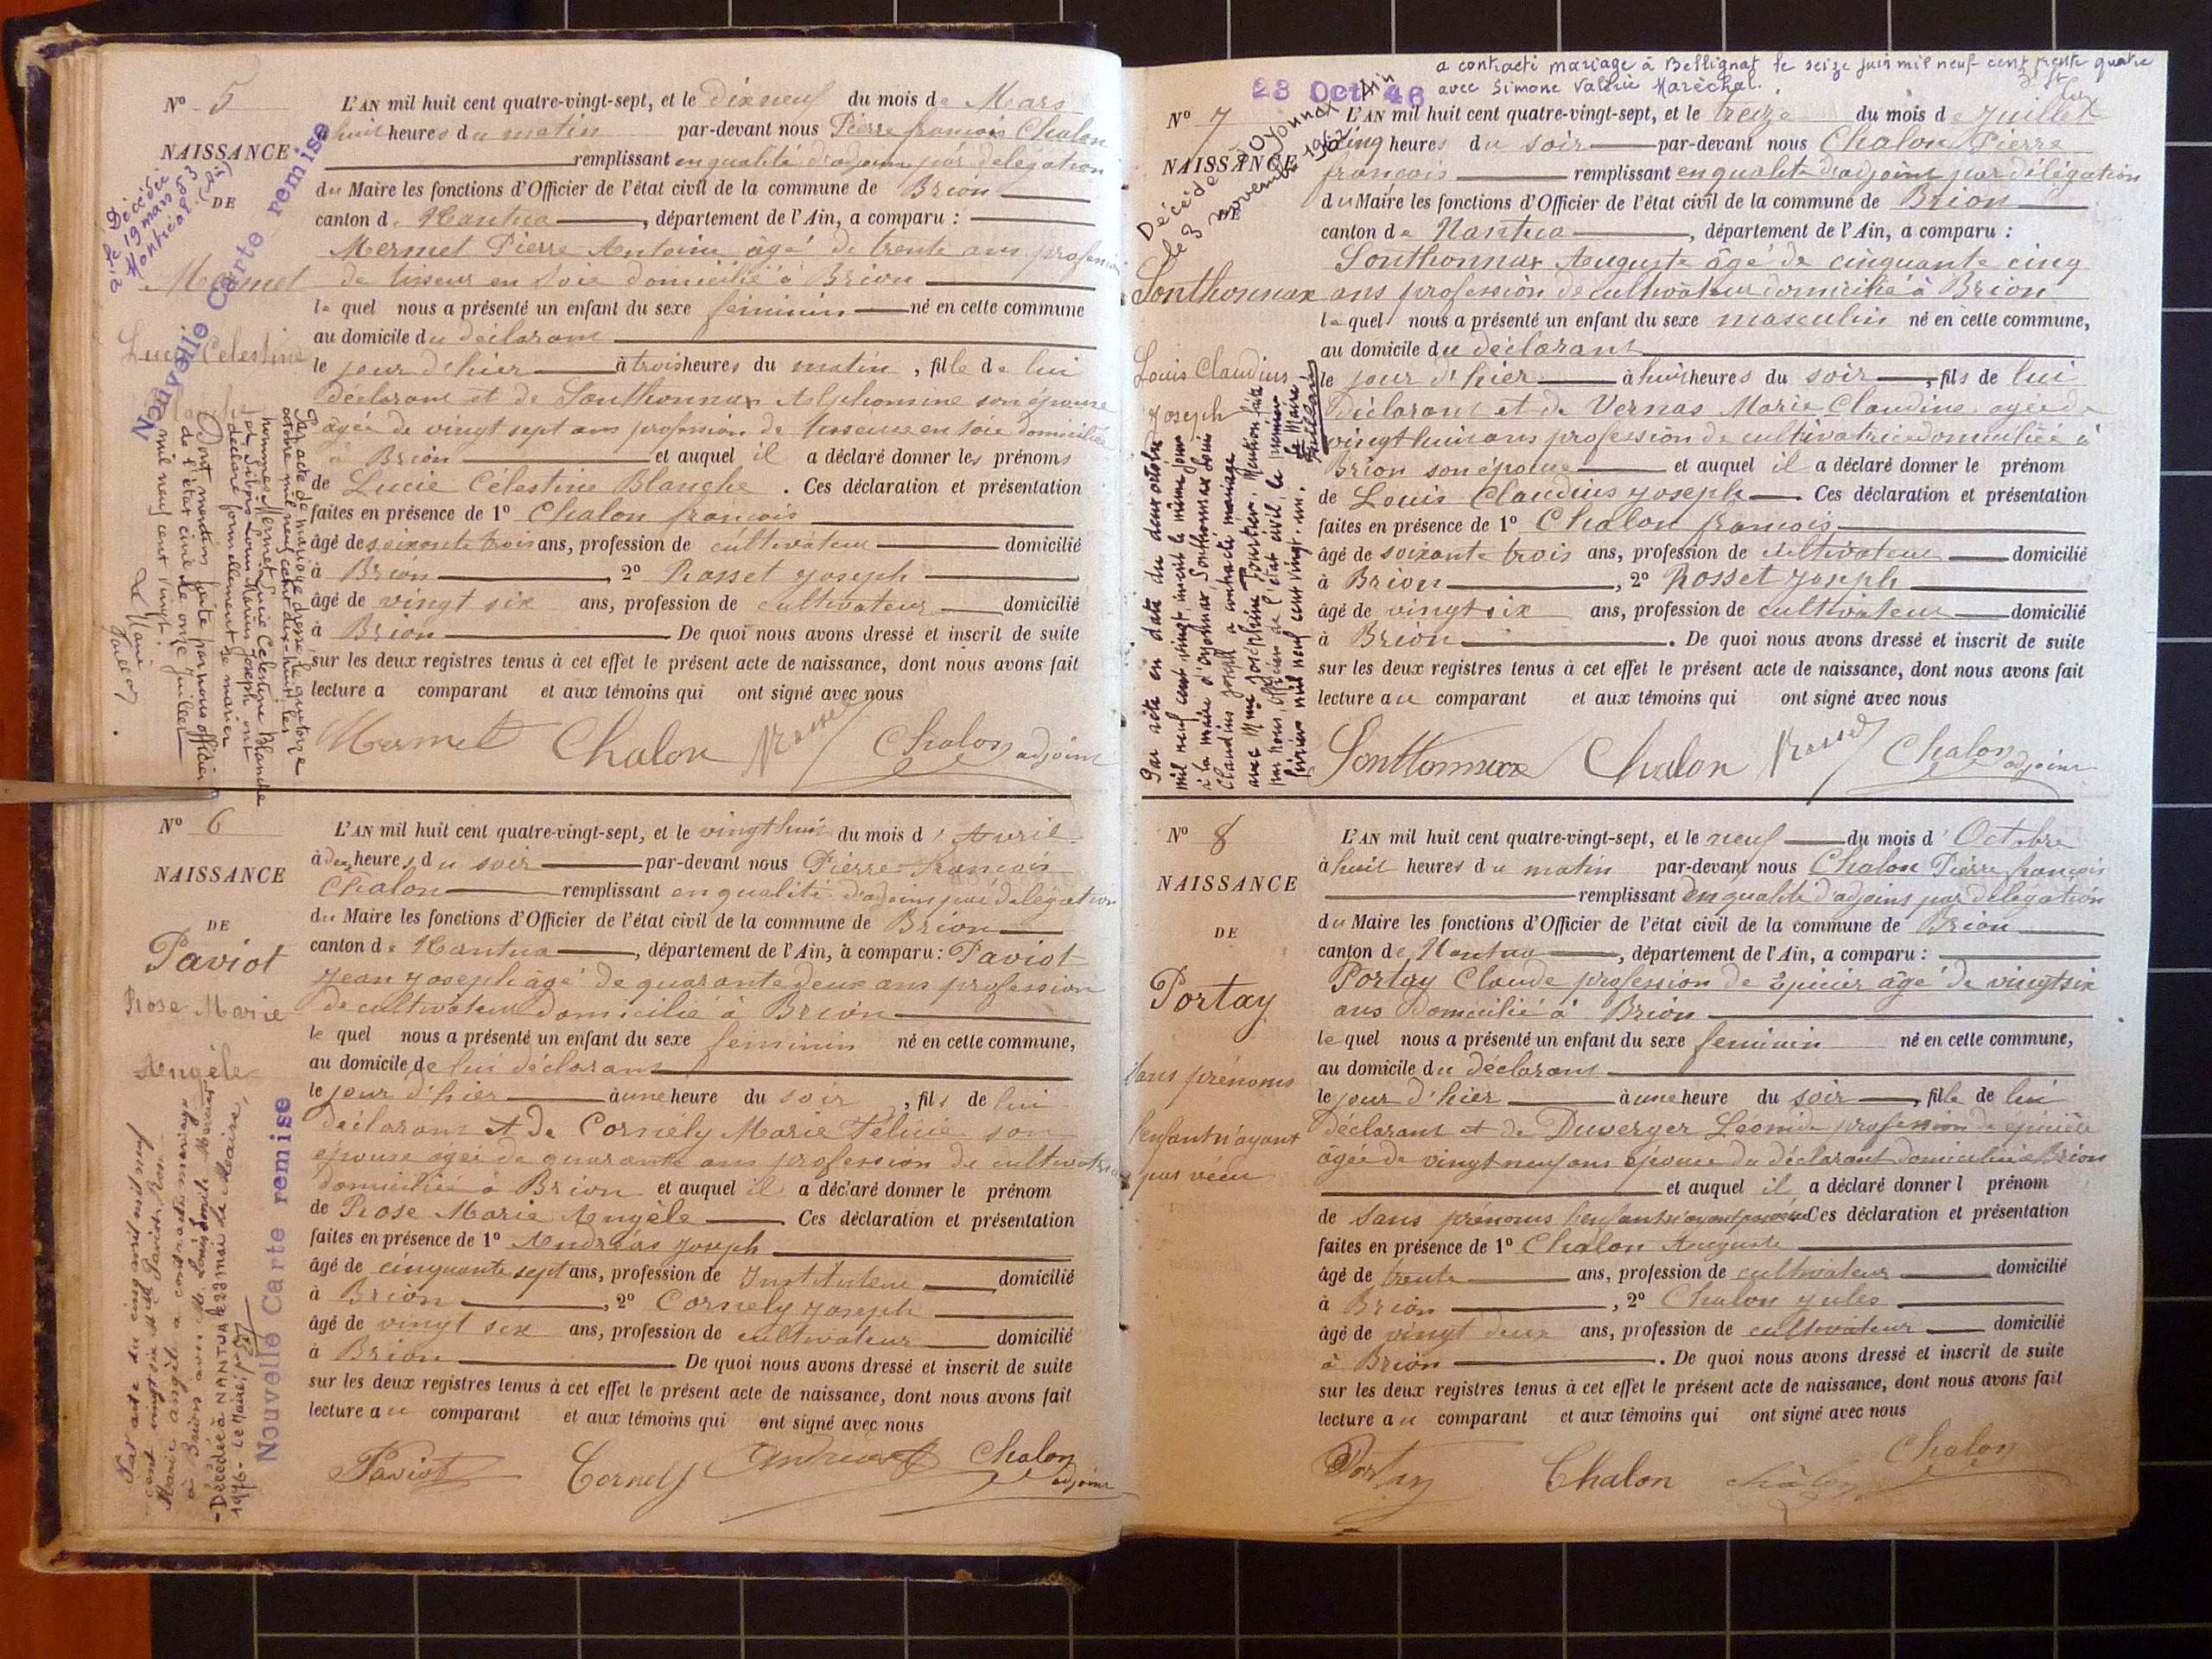 N° 5
NAISSANCE
DE
Mermet
Lucie Célestine
Nouvelle Carte remise
L'AN mil huit cent quatre-vingt-sept, et le dix neuf du mois de Mars
à huit heures du matin par-devant nous Pierre françois Chalon
remplissant en qualité d'adjoint par délégation
du Maire les fonctions d'Officier de l'état civil de la commune de Brion
canton de Nantua, département de l'Ain, a comparu :
Mermet Pierre Antoine âgé de trente ans profession
de tisseur en soie domicilié à Brion
le quel nous a présenté un enfant du sexe féminin né en cette commune
au domicile du déclarant
le jour d'hier à trois heures du matin, fille de lui
déclarant et de Sonthonnax Alphonsine son épouse
âgée de vingt sept ans profession de tisseuse en soie domiciliée
à Brion et auquel il a déclaré donner les prénoms
de Lucie Célestine Blanche. Ces déclaration et présentation
faites en présence de 1° Chalon françois
âgé de soixante trois ans, profession de cultivateur domicilié
à Brion, 2° Rosset Joseph
âgé de vingt six ans, profession de cultivateur domicilié
à Brion De quoi nous avons dressé et inscrit de suite
sur les deux registres tenus à cet effet le présent acte de naissance, dont nous avons fait
lecture a comparant et aux témoins qui ont signé avec nous
Mermet Chalon Rosset Chalon adjoint
Par acte de mariage dressé le quatorze
octobre mil neuf cent dix-huit les
nommés Mermet Lucie Célestine Blanche
Louis Marius Joseph ont
déclaré formellement se marier
Dont mention faite par nous officier
de l'état civil le onze juillet
mil neuf cent vingt.
Le Maire
N° 6
NAISSANCE
DE
Paviot
Rose Marie
Angèle
L'AN mil huit cent quatre-vingt-sept, et le vingt huit du mois d'Avril
à deux heures du soir par-devant nous Pierre françois
Chalon remplissant en qualité d'adjoint par délégation
du Maire les fonctions d'Officier de l'état civil de la commune de Brion
canton de Nantua, département de l'Ain, a comparu : Paviot
Jean Joseph âgé de quarante deux ans profession
de cultivateur domicilié à Brion
le quel nous a présenté un enfant du sexe féminin né en cette commune,
au domicile de lui déclarant
le jour d'hier à une heure du soir, fils de lui
déclarant et de Cornély Marie Féline son
épouse âgée de quarante ans profession de cultivatrice
domiciliée à Brion et auquel il a déclaré donner le prénom
de Rose Marie Angèle. Ces déclaration et présentation
faites en présence de 1° Andréas Joseph
âgé de cinquante sept ans, profession de Instituteur domicilié
à Brion, 2° Cornély Joseph
âgé de vingt six ans, profession de cultivateur domicilié
à Brion De quoi nous avons dressé et inscrit de suite
sur les deux registres tenus à cet effet le présent acte de naissance, dont nous avons fait
lecture au comparant et aux témoins qui ont signé avec nous
Paviot Cornely Andréas Chalon adjoint
Par acte du cinq avril mil neuf
cent vingt six Paviot Rose
Marie Angèle a contracté mariage
à Brion avec Mr. Louis Mercier
- Décédée à NANTUA le 23 mai
1976 - Le Maire,
Nouvelle Carte remise
28 Oct 46
a contracté mariage à Bellignat le seize juin mil neuf cent trente quatre
avec Simone Valérie Maréchal.
N° 7
NAISSANCE
DE
Décédé à Oyonnax Ain
le 3 novembre 1962
Sonthonnax
Louis Claudius
Joseph
L'AN mil huit cent quatre-vingt-sept, et le treize du mois de Juillet
à cinq heures du soir par-devant nous Chalon Pierre
françois remplissant en qualité d'adjoint par délégation
du Maire les fonctions d'Officier de l'état civil de la commune de Brion
canton de Nantua, département de l'Ain, a comparu :
Sonthonnax Auguste âgé de cinquante cinq
ans profession de cultivateur domicilié à Brion
le quel nous a présenté un enfant du sexe masculin né en cette commune,
au domicile du déclarant
le jour d'hier à huit heures du soir, fils de lui
déclarant et de Vernas Marie Claudine agée de
vingt huit ans profession de cultivatrice domiciliée à
Brion son épouse et auquel il a déclaré donner le prénom
de Louis Claudius Joseph. Ces déclaration et présentation
faites en présence de 1° Chalon françois
âgé de soixante trois ans, profession de cultivateur domicilié
à Brion, 2° Rosset Joseph
âgé de vingt six ans, profession de cultivateur domicilié
à Brion. De quoi nous avons dressé et inscrit de suite
sur les deux registres tenus à cet effet le présent acte de naissance, dont nous avons fait
lecture au comparant et aux témoins qui ont signé avec nous
Sonthonnax Chalon Rosset Chalon adjoint
Par acte en date du deux octobre
mil neuf cent vingt, inscrit le même jour
à la mairie d'Oyonnax, Sonthonnax Louis
Claudius Joseph a contracté mariage
avec Mme Joséphine Tournier. Mention faite
par nous, officier de l'état civil, le premier
février mil neuf cent vingt-un.
Le Maire
N° 8
NAISSANCE
DE
Portay
Sans prénoms
l'enfant n'ayant
pas vécu
L'AN mil huit cent quatre-vingt-sept, et le neuf du mois d'Octobre
à huit heures du matin par-devant nous Chalon Pierre françois
remplissant en qualité d'adjoint par délégation
du Maire les fonctions d'Officier de l'état civil de la commune de Brion
canton de Nantua, département de l'Ain, a comparu :
Portay Claude profession de Epicier âgé de vingt six
ans domicilié à Brion
le quel nous a présenté un enfant du sexe féminin né en cette commune,
au domicile du déclarant
le jour d'hier à une heure du soir, fille de lui
déclarant et de Duverger Léonide profession de épicière
âgée de vingt neuf ans épouse du déclarant domiciliée à Brion
et auquel il a déclaré donner l prénom
de Sans prénoms l'enfant n'ayant pas vécu Ces déclaration et présentation
faites en présence de 1° Chalon Auguste
âgé de trente ans, profession de cultivateur domicilié
à Brion, 2° Chalon Jules
âgé de vingt deux ans, profession de cultivateur domicilié
à Brion. De quoi nous avons dressé et inscrit de suite
sur les deux registres tenus à cet effet le présent acte de naissance, dont nous avons fait
lecture au comparant et aux témoins qui ont signé avec nous
Portay Chalon Chalon Chalon